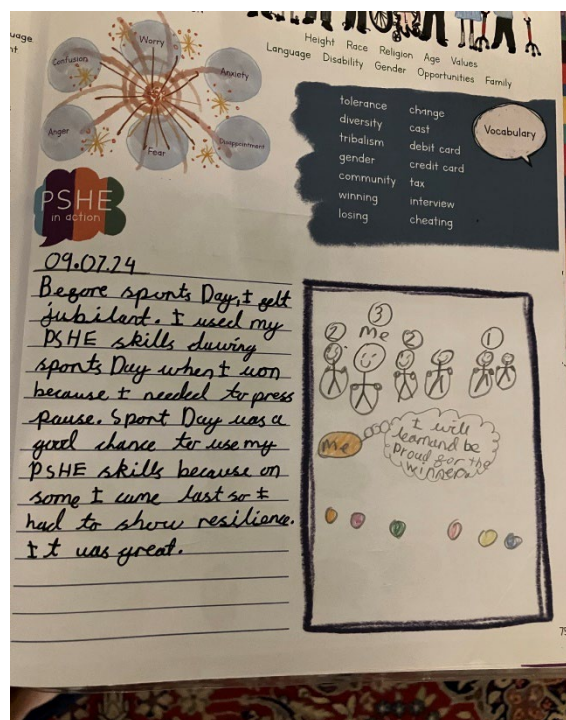 uage
nt
Worry
Confusion
Anxiety
Anger
Disappointment
Fear
Height Race Religion Age Values
Language Disability Gender Opportunities Family
tolerance
diversity
tribalism
gender
community
winning
losing
change
cast
debit card
credit card
tax
interview
cheating
Vocabulary
PSHE
in action
09.07.24
Before sports Day, I felt
jubilant. I used my
PSHE skills duwing
sports Day when I won
because I needed to press
pause. Sport Day was a
good chance to use my
PSHE skills because on
some I came last so I
had to show resilience.
It was great.
3
2 me 2 1
I will
learn and be
proud for the
winners
me